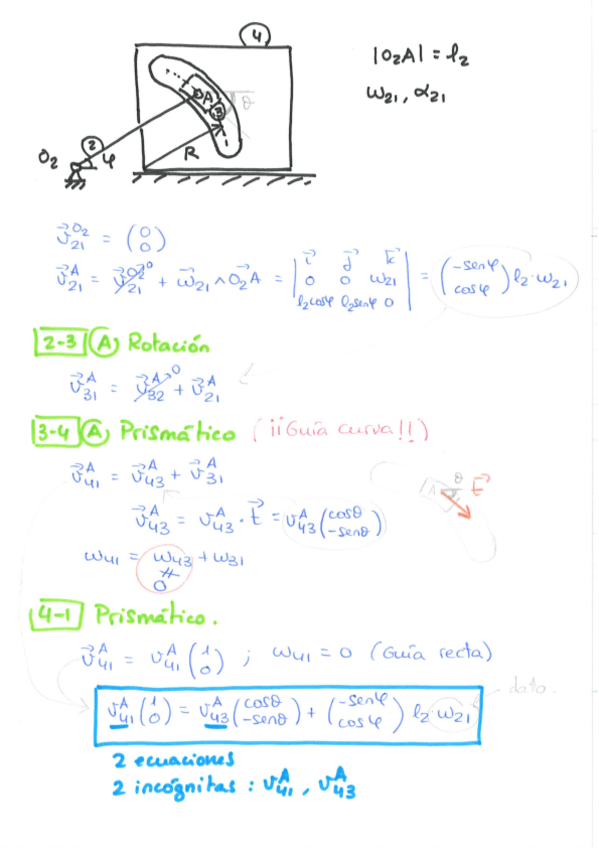 4
|O₂A| = l₂
A
3
θ
ω₂₁, α₂₁
2
O₂
φ
R
v⃗₂₁^O₂ = (0 0)
v⃗₂₁^A = v⃗₂₁^O₂ ⁰ + ω⃗₂₁ ∧ O₂A⃗ = | i⃗ j⃗ k⃗ ; 0 0 ω₂₁ ; l₂cosφ l₂senφ 0 | = (-senφ cosφ) l₂·ω₂₁
2-3 A Rotación
v⃗₃₁^A = v⃗₃₂^A ⁰ + v⃗₂₁^A
3-4 A Prismático (¡¡Guía curva!!)
v⃗₄₁^A = v⃗₄₃^A + v⃗₃₁^A
θ
A
t⃗
v⃗₄₃^A = v₄₃^A · t⃗ = v₄₃^A (cosθ -senθ)
ω₄₁ = ω₄₃ + ω₃₁
≠
0
4-1 Prismático.
v⃗₄₁^A = v₄₁^A (1 0) ; ω₄₁ = 0 (Guía recta)
dato.
v₄₁^A (1 0) = v₄₃^A (cosθ -senθ) + (-senφ cosφ) l₂·ω₂₁
2 ecuaciones
2 incógnitas : v₄₁^A , v₄₃^A